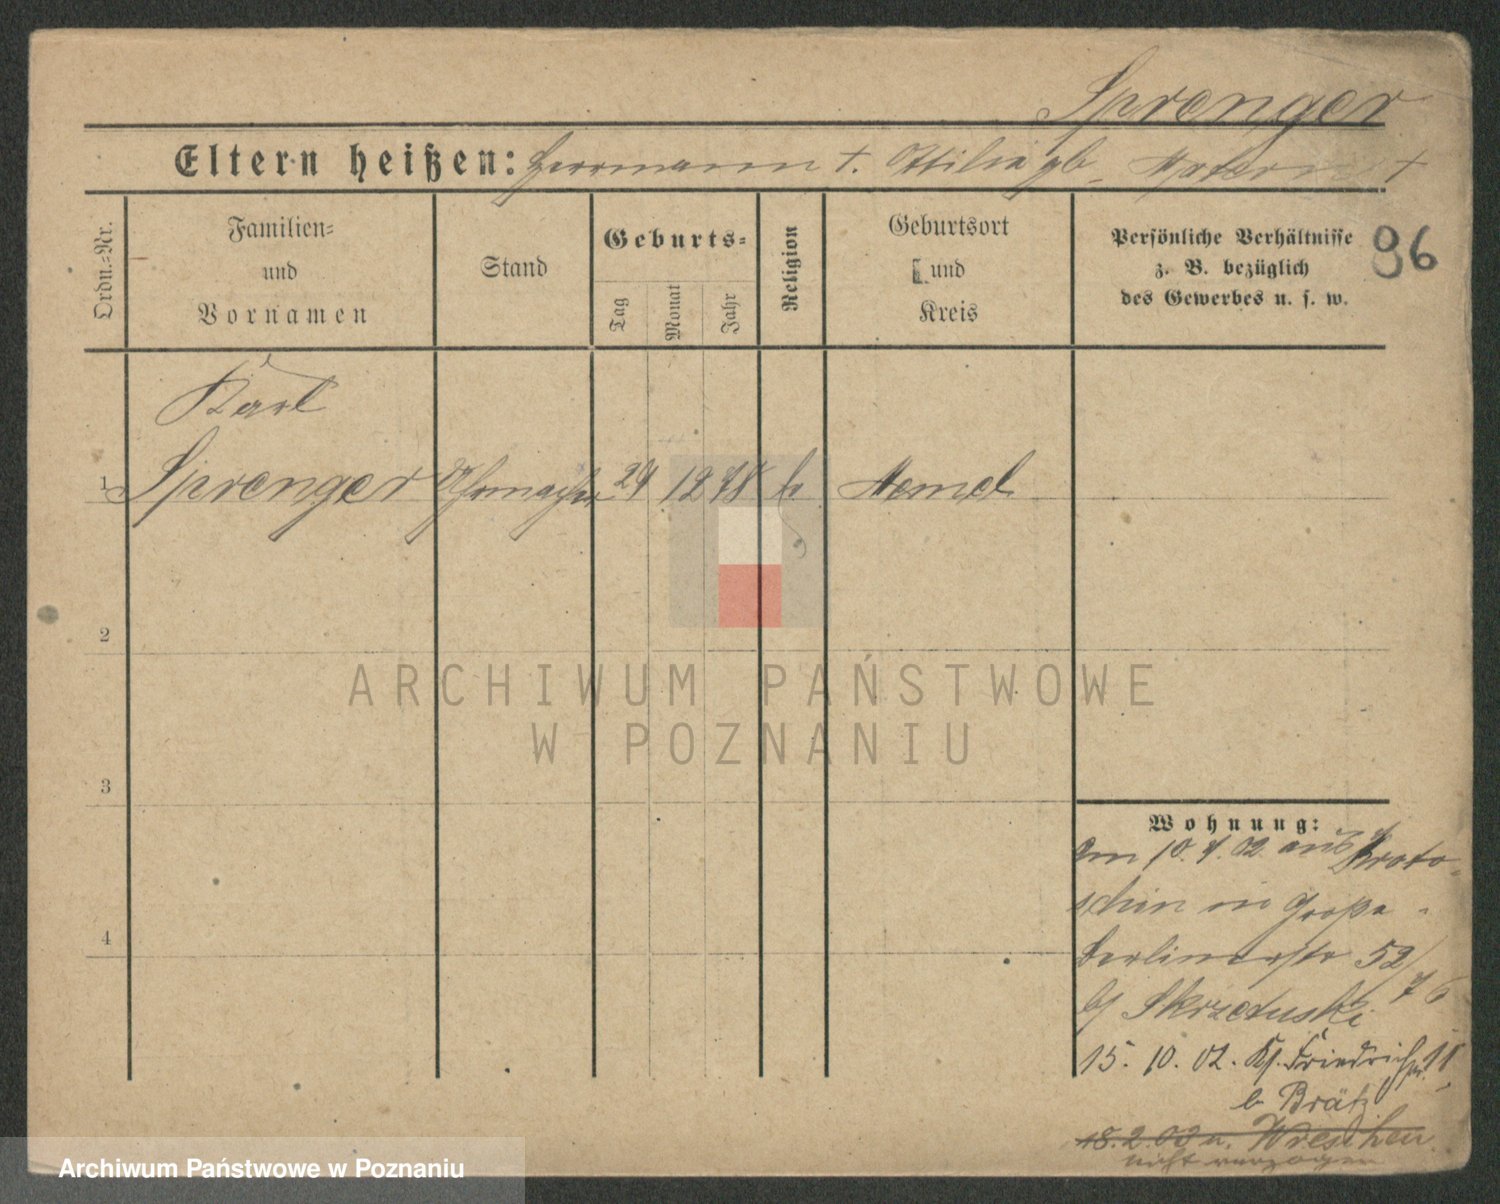 Sprenger
Eltern heißen: Herrmann †. Ottilie gb. †
Ordn.-Nr.
Familien-
und
Vornamen
Stand
Geburts-
Tag
Monat
Jahr
Religion
Geburtsort
und
Kreis
Persönliche Verhältnisse
z. B. bezüglich
des Gewerbes u. s. w.
96
Karl
1 Sprenger Uhrmacher 24 12 78 Memel
2
3
4
ARCHIWUM PAŃSTWOWE
W POZNANIU
Wohnung:
Am 10. 4. 02. aus Kroto-
schin in Große
Berlinerstr 52/
76
bj Skrzetuski
15. 10. 02. Kj. Friedrichstr. 11
b. Brätz
18. 2. 03 n. Wreschen
nicht verzogen
Archiwum Państwowe w Poznaniu